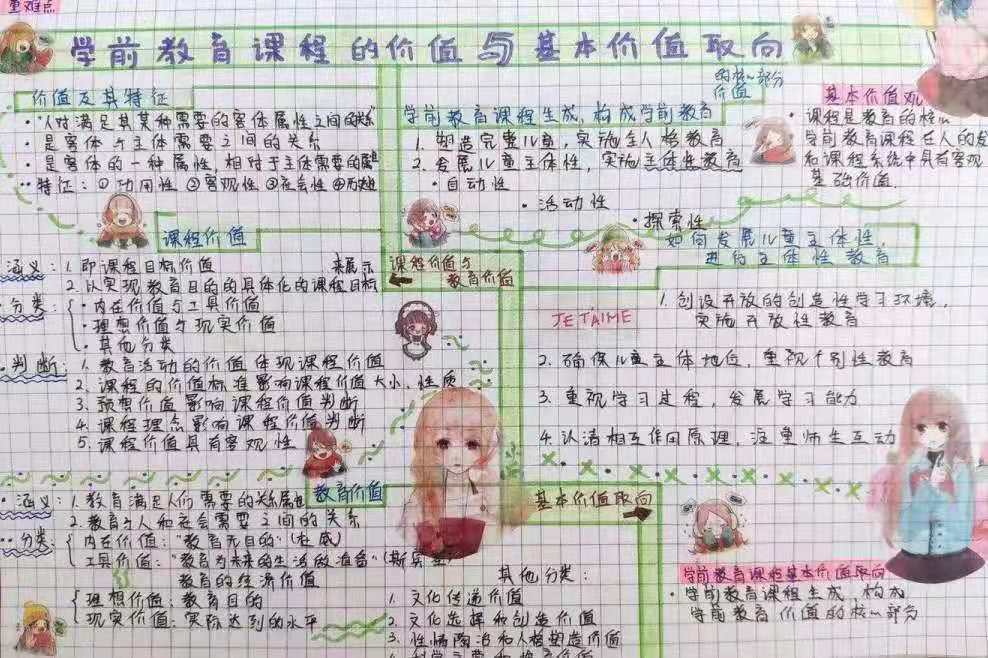 重难点
学前教育课程的价值与基本价值取向
价值及其特征
·"人对满足其某种需要的客体属性之间的关系
·是客体与主体需要之间的关系
·是客体的一种属性，相对于主体需要的属
··特征：①功用性 ②客观性 ③社会性 ④历史性
的核心部分
价值
学前教育课程生成、构成学前教育
1. 塑造完整儿童，实施全人格教育
2. 发展儿童主体性，实施主体性教育
·自动性
·活动性
·探索性
基本价值观
·课程是教育的核心
学前教育课程在人的发
和课程系统中具有客观
基础价值.
课程价值
涵义：1. 即课程目标价值 来展示
2. 以实现教育目的的具体化的课程目标
·分类：{·内在价值与工具价值
·理想价值与现实价值
·其他分类
·判断：1. 教育活动的价值体现课程价值
2. 课程的价值标准影响课程价值大小、性质
3. 预想价值影响课程价值判断
4. 课程理念影响课程价值判断
5. 课程价值具有客观性
课程价值与
教育价值
如何发展儿童主体性，
进行主体性教育
JE T'AIME
1. 创设开放的创造性学习环境，
实施开放性教育
2. 确保儿童主体地位，重视个别性教育
3. 重视学习过程，发展学习能力
4. 认清相互作用原理，注重师生互动
教育价值
·涵义：1. 教育满足人们需要的关系属性
2. 教育与人和社会需要之间的关系
··分类：{内在价值："教育无目的"(杜威)
工具价值："教育为未来的生活做准备"(斯宾塞)
教育的经济价值
{理想价值：教育目的
现实价值：实际达到的水平
基本价值取向
其他分类：
1. 文化传递价值
2. 文化选择和创造价值
3. 性情陶冶和人格塑造价值
学前教育课程基本价值取向
·学前教育课程生成、构成
学前教育价值的核心部分